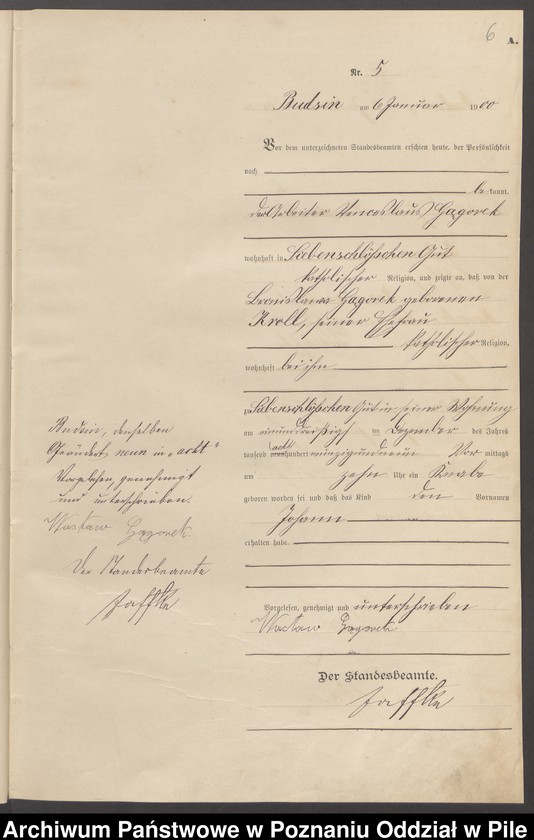 6
A.
Nr. 5
Budsin am 6 Januar 1900
Vor dem unterzeichneten Standesbeamten erschien heute, der Persönlichkeit
nach
bekannt,
der Arbeiter Gagorek
wohnhaft in Liebenschlößchen Gut
katholischer Religion, und zeigte an, daß von der
Gagorek geborenen
Kroll, seiner Ehefrau
katholischer Religion,
wohnhaft bei ihm
zu Liebenschlößchen Gut in seiner Wohnung
am einunddreißigsten Dezember des Jahres
tausend acht hundert neunzig und neun Vor mittags
um zehn Uhr ein Knabe
geboren worden sei und daß das Kind den Vornamen
Johann
erhalten habe.
Vorgelesen, genehmigt und unterschrieben
Wacław Gągorek
Der Standesbeamte.
Jaffke
Budsin, denselben
Geändert neun in "acht"
Vorgelesen, genehmigt
und unterschrieben.
Wacław Gągorek
Der Standesbeamte
Jaffke
Archiwum Państwowe w Poznaniu Oddział w Pile